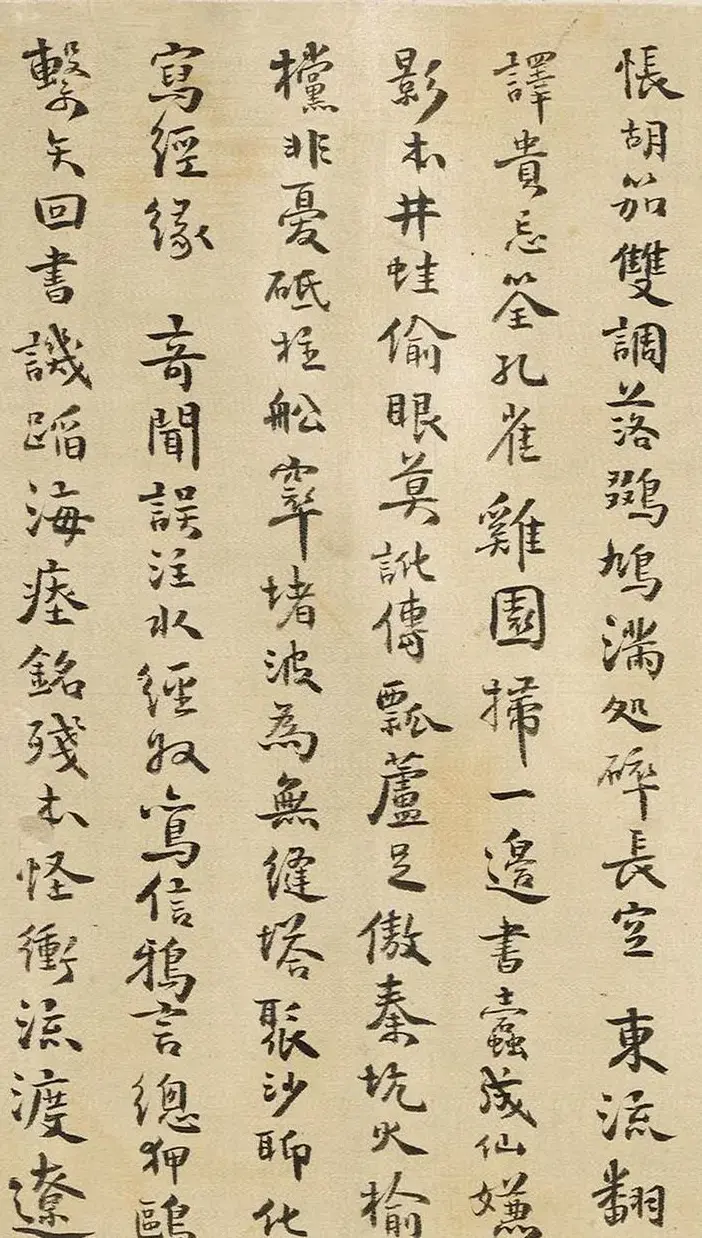 悵胡笳雙調落鵶鳩滿処碎長空 東流翻
譯貴忘筌孔雀雞園掃一邊書蠹成仙嫌
影本井蛙偷眼莫訛傳瓢蘆足傲秦坑火榆
欓非憂砥柱舩窣堵波為無縫塔聚沙聊化
寫經緣 奇聞誤注水經收寫信鴉言總狎鷗
繫矢回書譏蹈海瘞銘殘本怪衝流渡遼